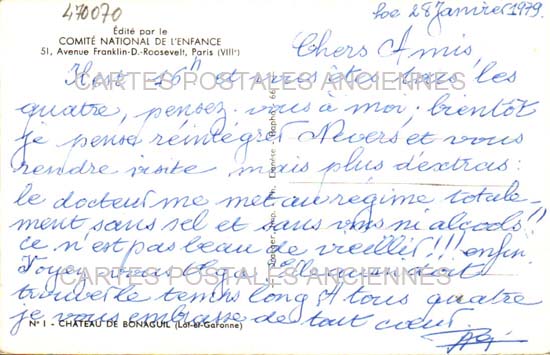 470070
Édité par le
COMITÉ NATIONAL DE L'ENFANCE
51, Avenue Franklin-D.-Roosevelt, Paris (VIIIe)
28 Janvier 1979.
Chers Amis
16h et vous êtes tous les
quatre, pensez-vous à moi; bientôt
je pense réintégrer Nevers et vous
rendre visite mais plus d'extras:
le docteur me met au régime totale-
ment sans sel et sans vins ni alcools!!
ce n'est pas beau de vieillir!!! enfin
Soyez doit
trouver le temps long. A tous quatre
je vous embrasse de tout cœur.
N° 1 - CHÂTEAU DE BONAGUIL (Lot-et-Garonne)
CARTES POSTALES ANCIENNES
CARTES POSTALES ANCIENNES
CARTES POSTALES ANCIENNES